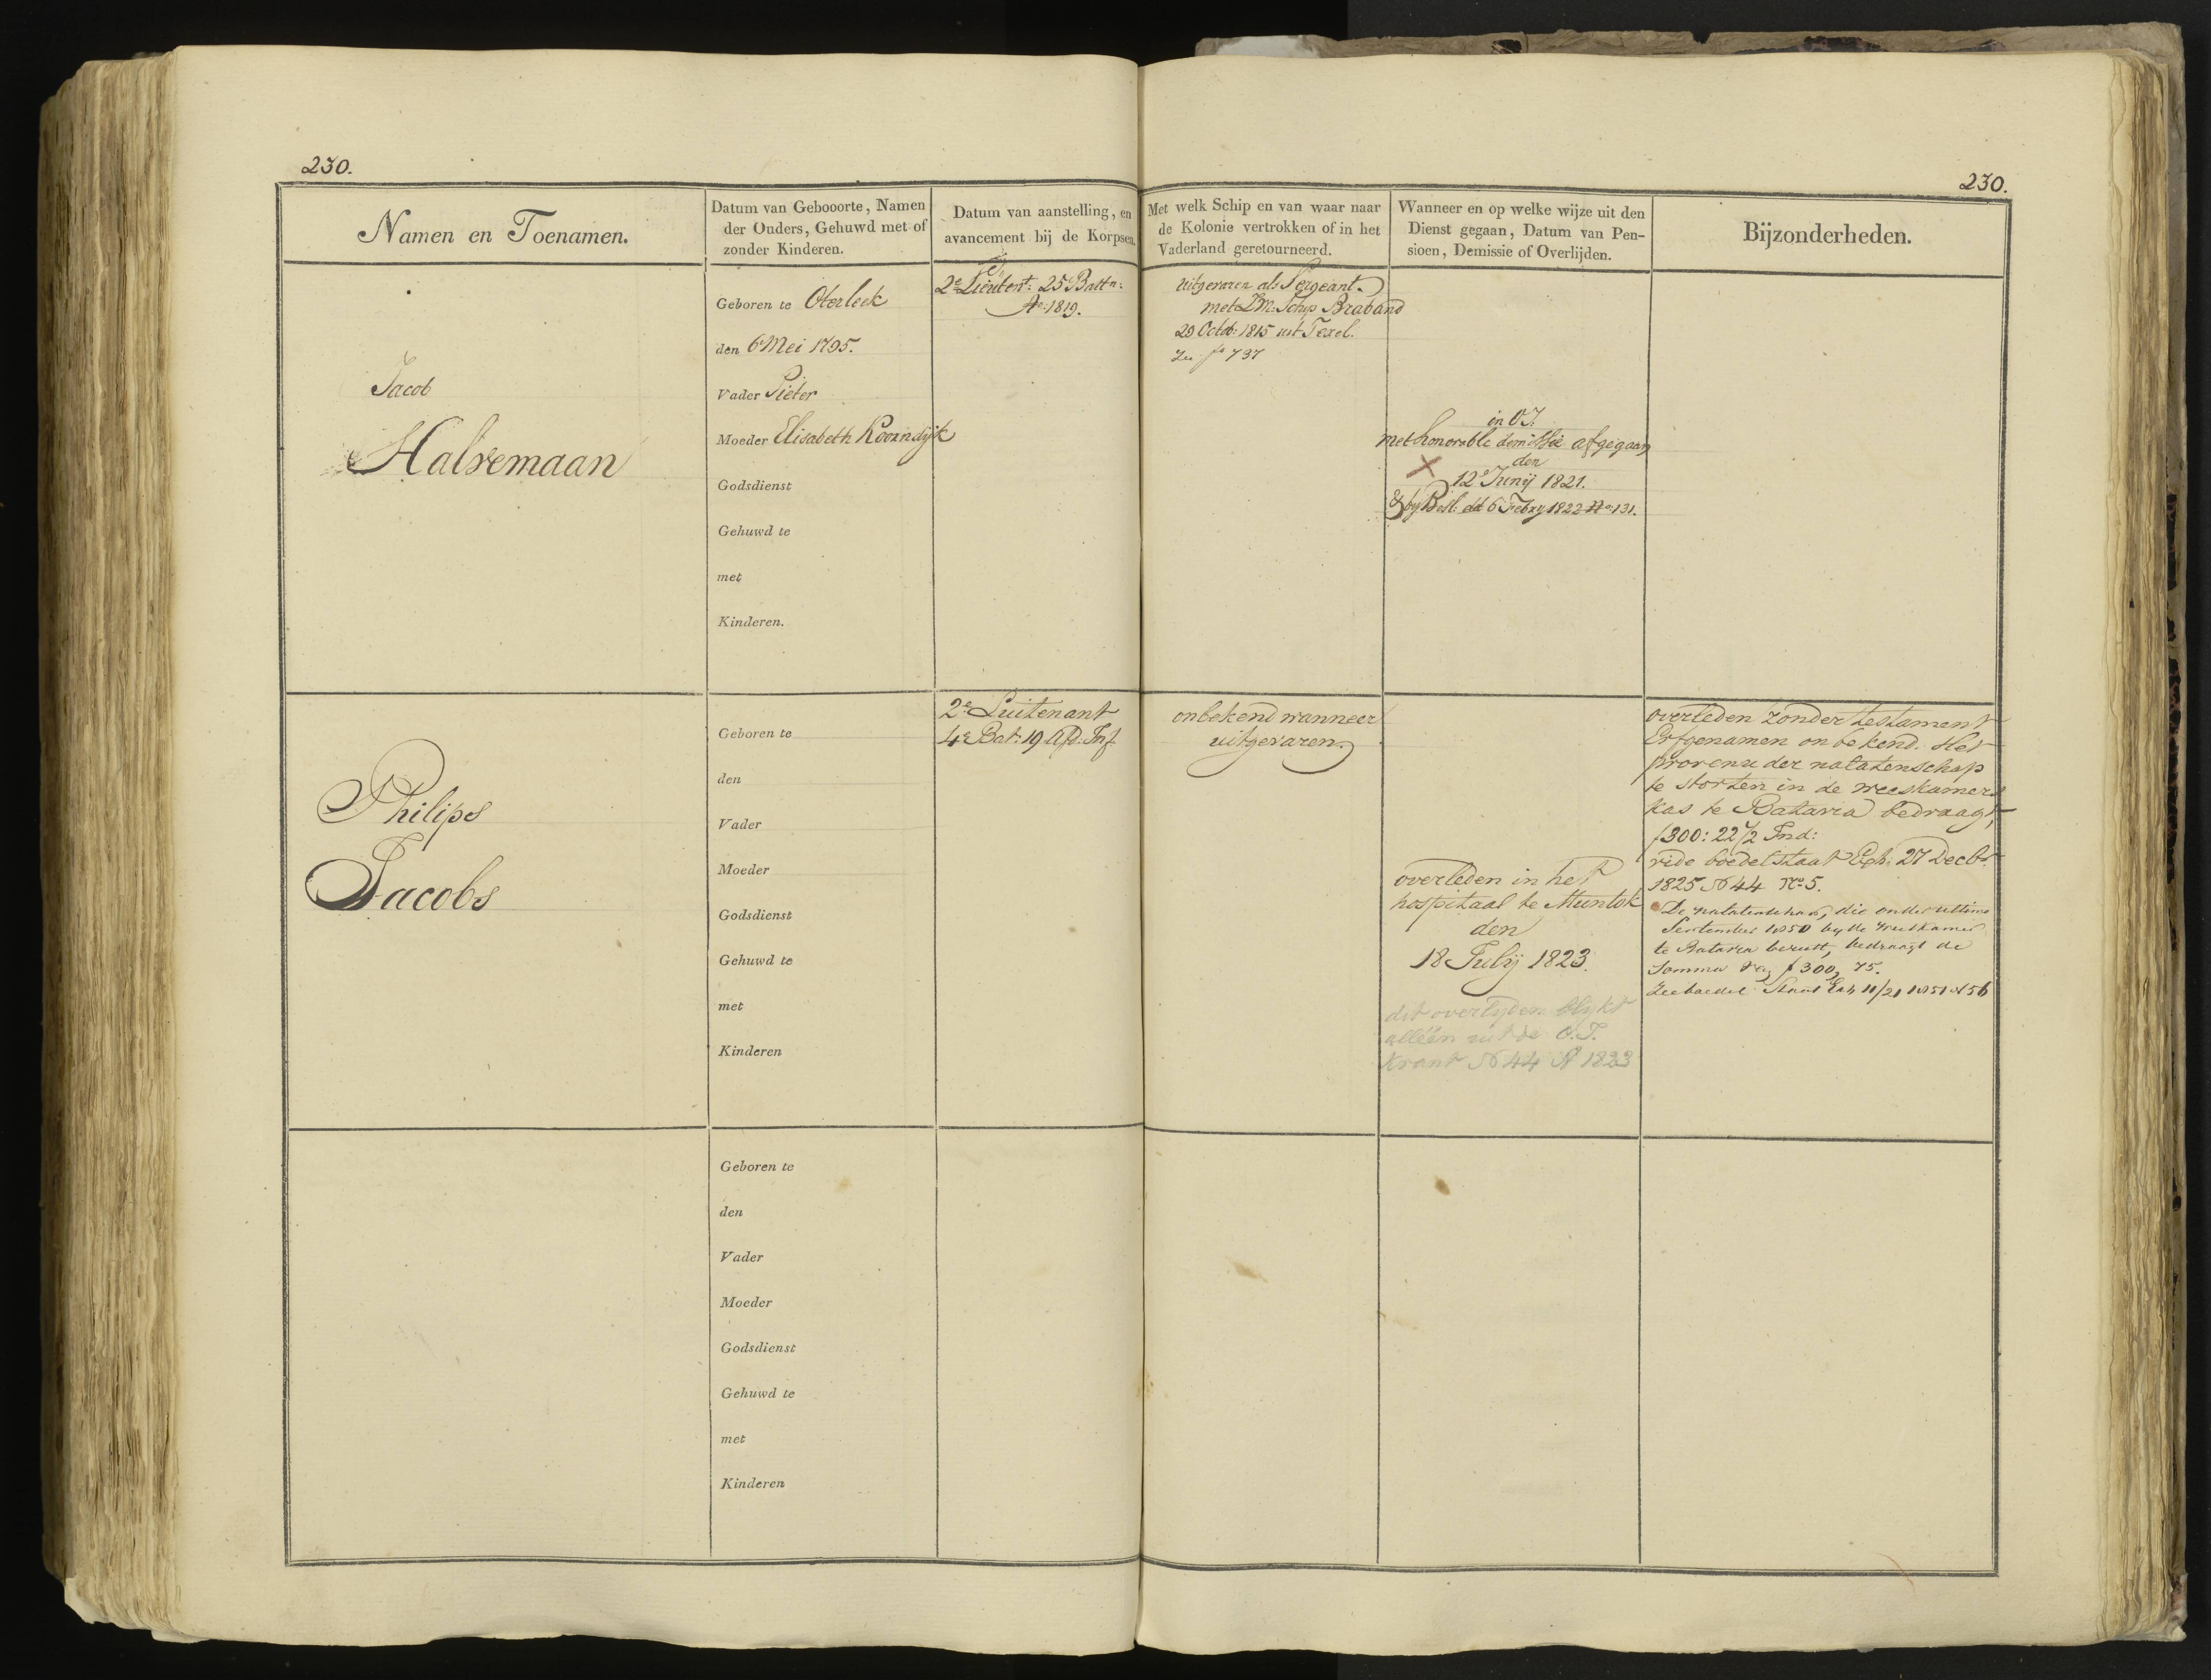 230.
230.
Namen en Toenamen.
Datum van Gebooorte, Namen
der Ouders, Gehuwd met of
zonder Kinderen.
Datum van aanstelling, en
avancement bij de Korpsen.
Met welk Schip en van waar naar
de Kolonie vertrokken of in het
Vaderland geretourneerd.
Wanneer en op welke wijze uit den
Dienst gegaan, Datum van Pen-
sioen, Demissie of Overlijden.
Bijzonderheden.
Jacob
Halvemaan
Geboren te Oterleek
den 6 Mei 1795.
Vader Pieter
Moeder Elisabeth Koorndijk
Godsdienst
Gehuwd te
met
Kinderen.
2e Lieutent: 25 Battn:
Ao: 1819.
uitgevaren als Sergeant.
met ZM: Schip Braband
29 Octob: 1815 uit Texel.
fo 737
in OI.
met honorable demissie afgegaan
den
12e Junij 1821.
bij Besl. dd 6 Febry 1822 No: 131.
Philips
Jacobs
Geboren te
den
Vader
Moeder
Godsdienst
Gehuwd te
met
Kinderen
2e Luitenant
4e Bat: 19 Afd: Inf
onbekend wanneer
uitgevaren.
overleden in het
hospitaal te Muntok
den
18 Julij 1823.
dit overlyden blykt
alléén uit de O.I.
Krant No 44 Ao 1823
overleden zonder testament
Erfgenamen onbekend. Het
provenu der nalatenschap
te storten in de weeskamers
kas te Batavia bedraagt,
f 300: 22 1/2 Ind:
vide boedelstaat Exh: 27 Decbr
1825 No 44 No 5.
De nalatenschap, die onder ultimo
September 1850 by de Weeskamer
te Batavia berust, bedraagt de
Somma van f 300, 75.
Zie boedel Staat Exh 11/21 1851 No 56
Geboren te
den
Vader
Moeder
Godsdienst
Gehuwd te
met
Kinderen